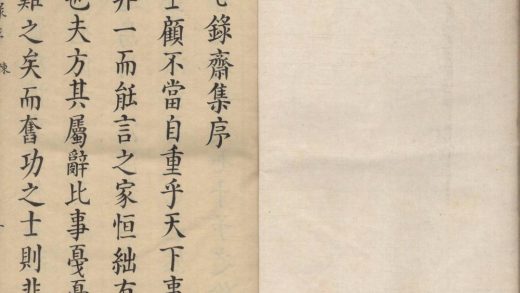 七錄齋集序
士顧不當自重乎天下事
非一而能言之家恒絀
也夫方其屬辭比事戞戞
難之矣而奮功之士則非
陳